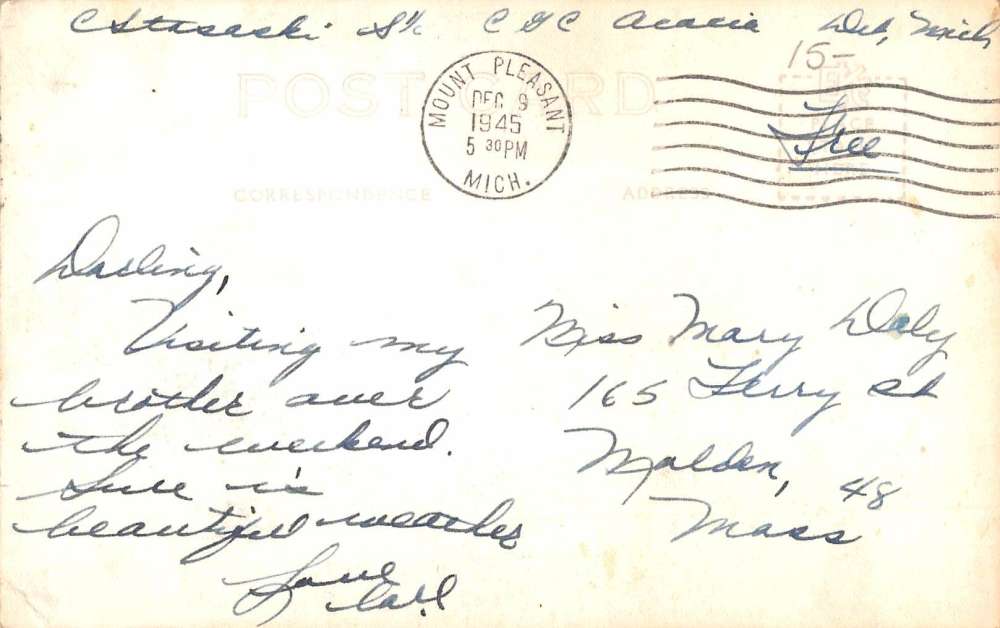 C Staseski S 1/c CGC Acacia Det, Mich
15-
POST CARD
MOUNT PLEASANT
DEC 9
1945
5 30 PM
MICH.
PLACE
Free
CORRESPONDENCE
ADDRESS
Darling,
Visiting my
brother over
the weekend.
Sure is
beautiful weather
Love
Carl
Miss Mary Daly
165 Ferry St
Malden, 48
Mass